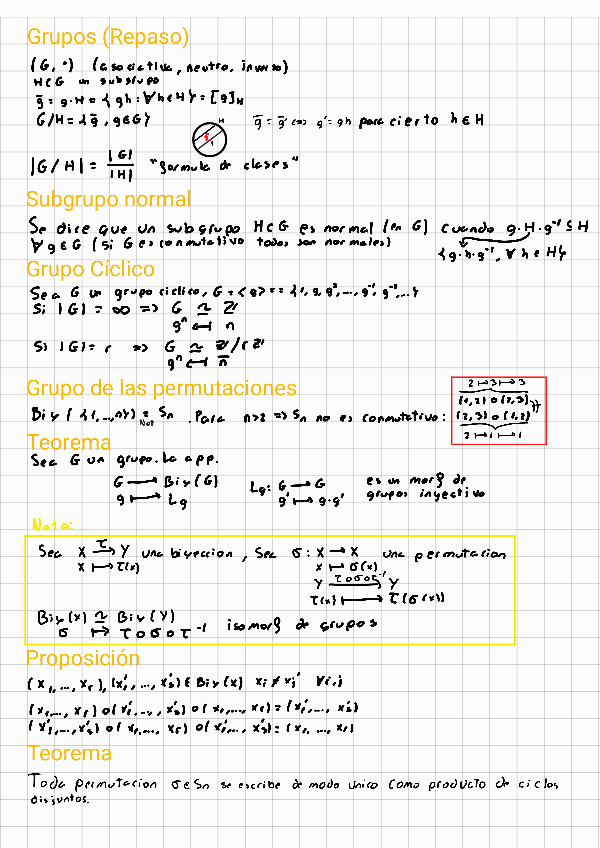 Grupos (Repaso)
(G, ·) (asociativa, neutro, inverso)
H ⊂ G un subgrupo
g̅ = g·H = { gh : ∀ h ∈ H } = [g]_H
G/H = { g̅, g ∈ G }
H
g̅ = g̅' <=> g' = gh para cierto h ∈ H
|G/H| = |G| / |H| "formula de clases"
Subgrupo normal
Se dice que un subgrupo H ⊂ G es normal (en G) cuando g·H·g⁻¹ ⊆ H
∀ g ∈ G (Si G es conmutativo todos son normales)
{ g·h·g⁻¹, ∀ h ∈ H }
Grupo Cíclico
Sea G un grupo ciclico, G = <g> = = { 1, g, g², ..., g⁻¹, g⁻², ... }
Si |G| = ∞ => G ≃ ℤ
gⁿ ↤ n
Si |G| = r => G ≃ ℤ/rℤ
gⁿ ↤ n̅
Grupo de las permutaciones
Biy ( {1, ..., n} ) = Sn . Para n>2 => Sn no es conmutativo:
Not
2 ↦ 3 ↦ 3
(1,2) o (2,3)
(2,3) o (1,2)
2 ↦ 1 ↦ 1
Teorema
Sea G un grupo. La app.
G → Biy (G)
g ↦ Lg
Lg: G → G
g' ↦ g·g'
es un morf de
grupos inyectivo
Nota:
Sea X →τ Y una biyeccion, Sea σ: X → X una permutacion
x ↦ τ(x)
x ↦ σ(x)
Y →τ o σ o τ⁻¹ Y
τ(x) ↦ τ(σ(x))
Biy (X) ≃ Biy (Y)
σ ↦ τ o σ o τ⁻¹ isomorf de grupos
Proposición
(x₁, ..., xr), (x'₁, ..., x's) ∈ Biy (x) xi ≠ xj' ∀ i,j
(x₁, ..., xr) o (x'₁, ..., x's) o (x₁, ..., xr) = (x'₁, ..., x's)
(x'₁, ..., x's) o (x₁, ..., xr) o (x'₁, ..., x's) = (x₁, ..., xr)
Teorema
Toda permutacion σ ∈ Sn se escribe de modo unico como producto de ciclos
disjuntos.